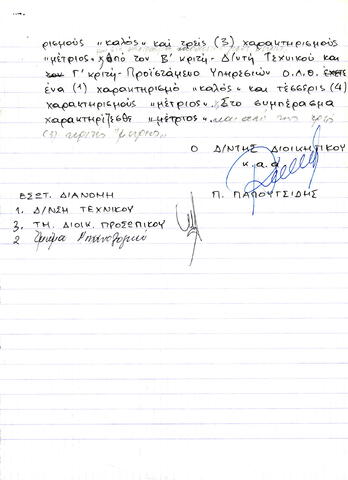 ρισμούς "καλός" και τρεις (3) χαρακτηρισμούς
"μέτριος", από τον Β' κριτή - Δ/ντή Τεχνικού και
τον Γ' κριτή - Προϊστάμενο Υπηρεσιών Ο.Λ.Θ. έχετε
ένα (1) χαρακτηρισμό "καλός" και τέσσερις (4)
χαρακτηρισμούς "μέτριος". Στο συμπέρασμα
χαρακτηρίζεσθε "μέτριος". και από τις τρεις
(3) κριτές "μέτριος"
Ο Δ/ΝΤΗΣ ΔΙΟΙΚΗΤΙΚΟΥ
κ.α.α
ΕΣΩΤ. ΔΙΑΝΟΜΗ
Π. ΠΑΠΟΥΤΣΙΔΗΣ
1. Δ/ΝΣΗ ΤΕΧΝΙΚΟΥ
3. ΤΜ. ΔΙΟΙΚ. ΠΡΟΣΩΠΙΚΟΥ
2 Τμήμα Μηχανολογικό